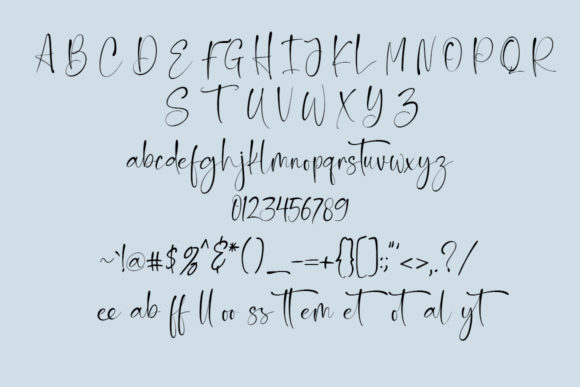 A B C D E F G H I J K L M N O P Q R
S T U V W X Y Z
abcdefghijklmnopqrstuvwxyz
0123456789
~`!@#$%^&*()_-=+{}[]:;"'<>,.?/
ee ab ff ll oo ss tt em et ot al yt